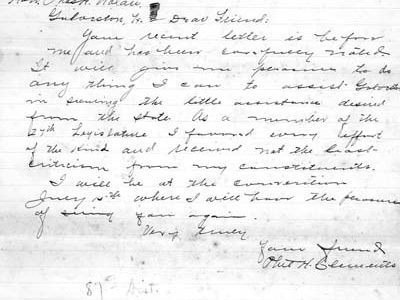 Hon. Thos. H. Nolan,
Galveston, Dear Friend:
Your recent letter is before
me and has been carefully noted
It will give me pleasure to do
any thing I can to assist Galveston
in securing the little assistance desired
from the State. As a member of the
27th Legislature I favored every effort
of the kind and received not the least
criticism from my constituents.
I will be at the convention
July where I will have the pleasure
of seeing you again.
Very truly
Your friend
H. Clements
87th Dist.